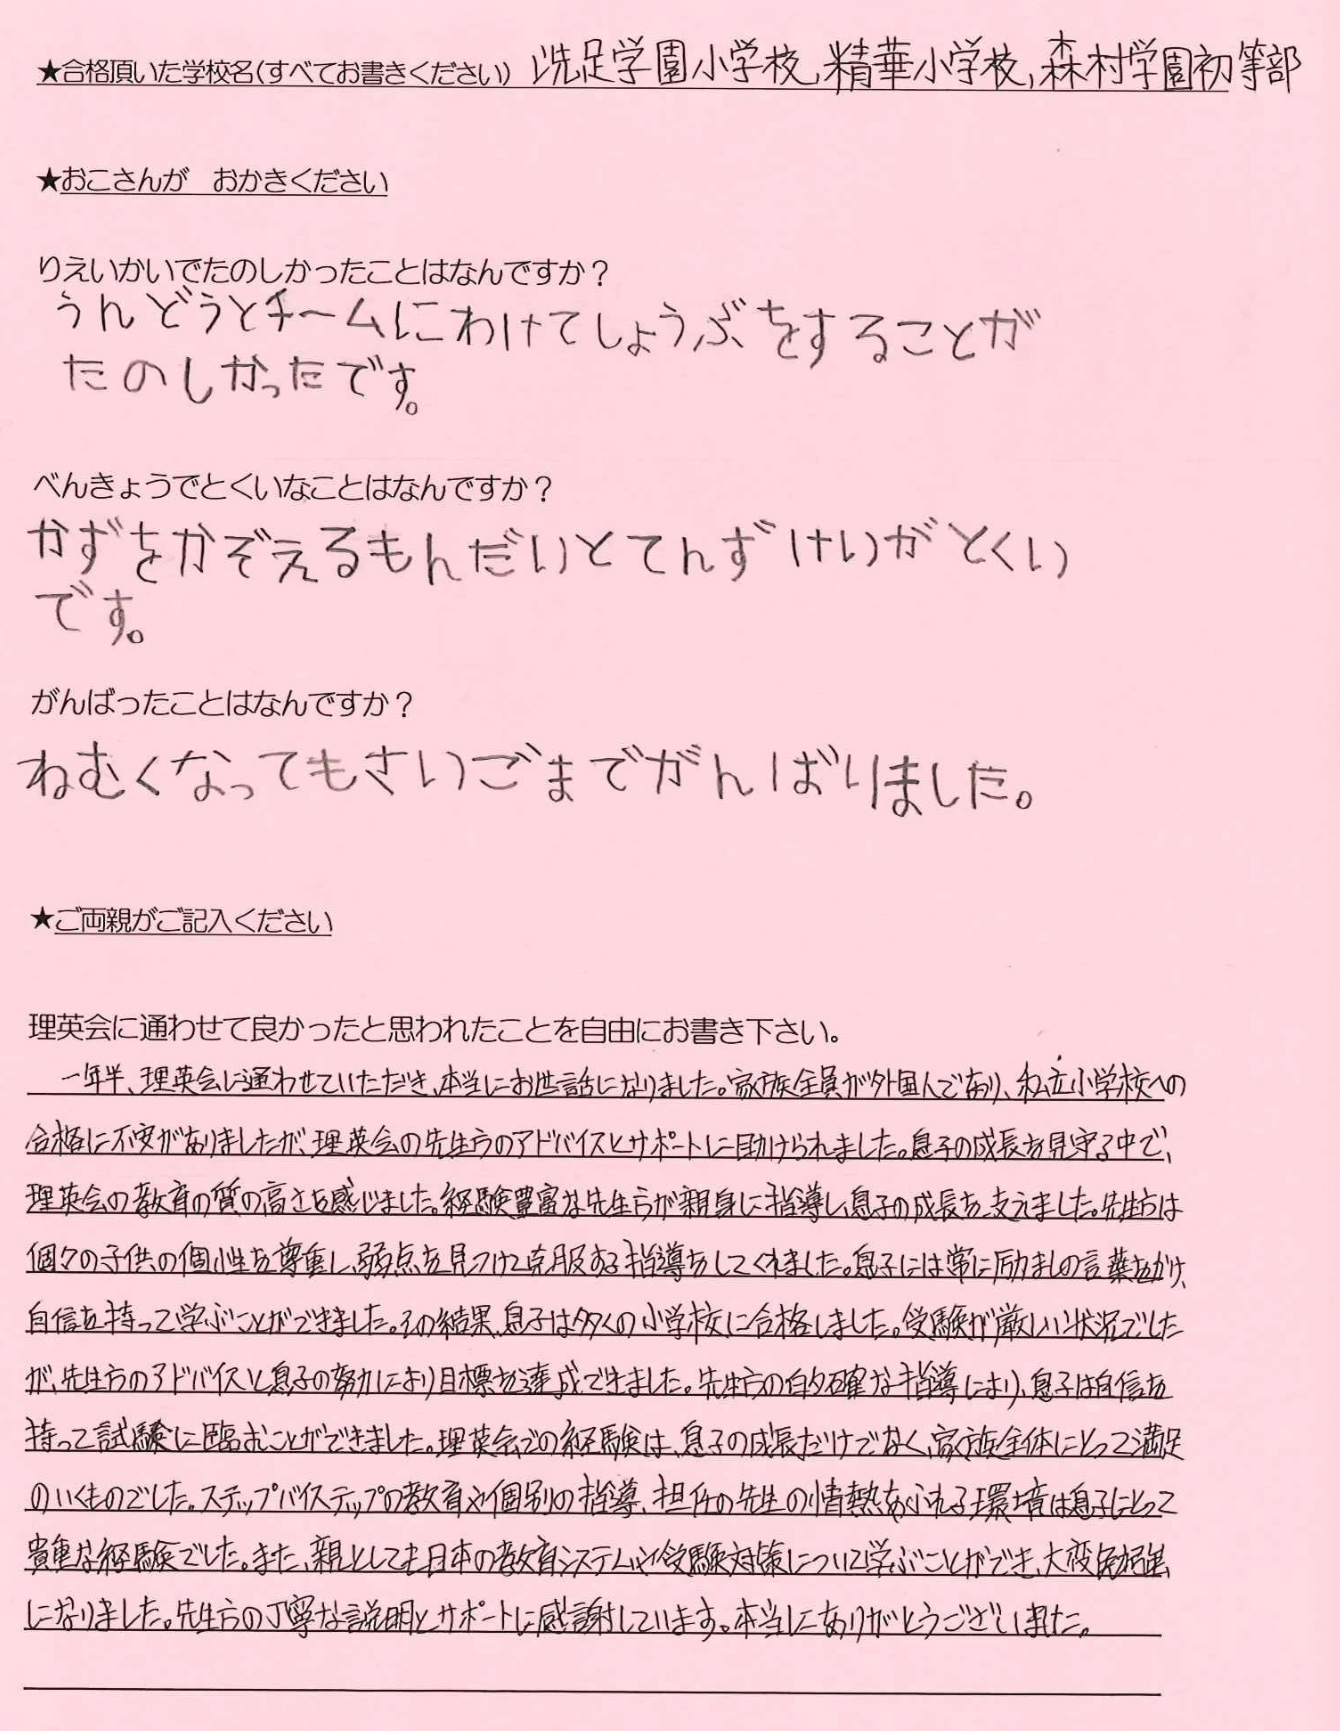 ★合格頂いた学校名(すべてお書きください) 洗足学園小学校,精華小学校,森村学園初等部
★おこさんが　おかきください
りえいかいでたのしかったことはなんですか？
うんどうとチームにわけてしょうぶをすることが
たのしかったです。
べんきょうでとくいなことはなんですか？
かずをかぞえるもんだいとてんずけいがとくい
です。
がんばったことはなんですか？
ねむくなってもさいごまでがんばりました。
★ご両親がご記入ください
理英会に通わせて良かったと思われたことを自由にお書き下さい。
一年半、理英会に通わせていただき、本当にお世話になりました。家族全員が外国人であり、私立小学校への
合格に不安がありましたが、理英会の先生方のアドバイスとサポートに助けられました。息子の成長を見守る中で、
理英会の教育の質の高さを感じました。経験豊富な先生方が親身に指導し、息子の成長を支えました。先生方は
個々の子供の個性を尊重し、弱点を見つけて克服する指導をしてくれました。息子には常に励ましの言葉をかけ、
自信を持って学ぶことができました。その結果、息子は多くの小学校に合格しました。受験が厳しい状況でした
が、先生方のアドバイスと息子の努力により目標を達成できました。先生方の的確な指導により、息子は自信を
持って試験に臨むことができました。理英会での経験は、息子の成長だけでなく、家族全体にとって満足
のいくものでした。ステップバイステップの教育や個別の指導、担任の先生の情熱あふれる環境は息子にとって
貴重な経験でした。また、親としても日本の教育システムや受験対策について学ぶことができ、大変勉強
になりました。先生方の丁寧な説明とサポートに感謝しています。本当にありがとうございました。